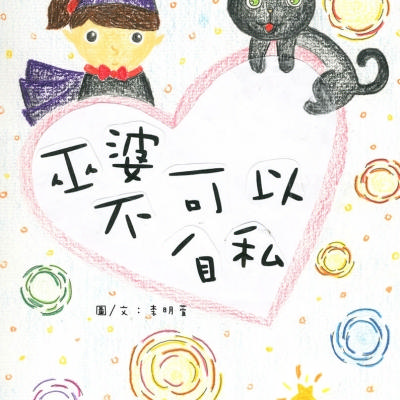 巫婆
不可以
自私
圖/文:李明萱